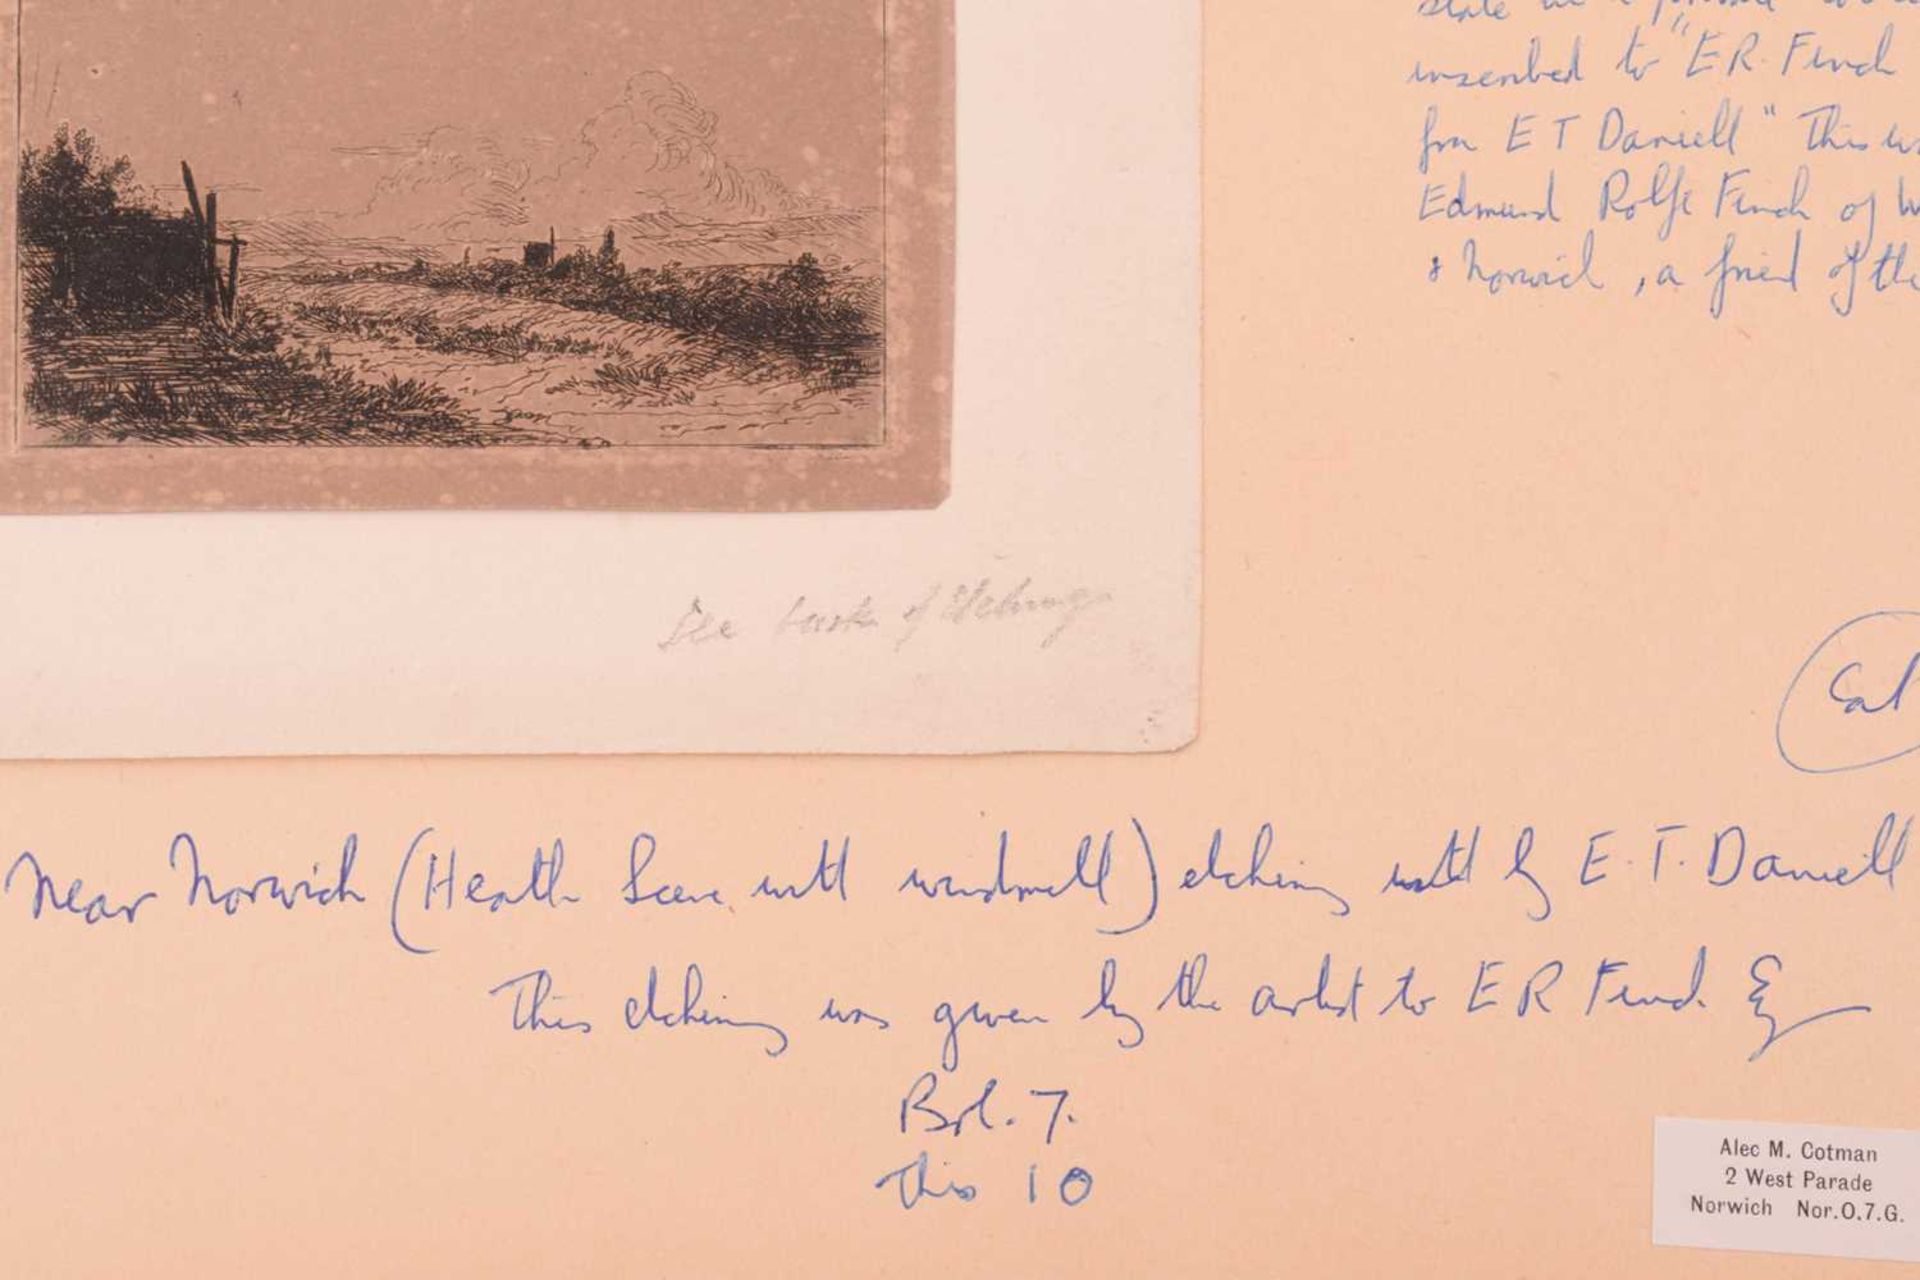 inscribed to "E R. Finch
from E T Daniell" This
Edmund Rolfe Finch of
& Norwich, a friend of the
See back of Etching
Near Norwich (Heath Scene with windmill) etching by E. T. Daniell
This etching was given by the artist to E R Finch. Esq
7.
This 10
Alec M. Cotman
2 West Parade
Norwich Nor.O.7.G.